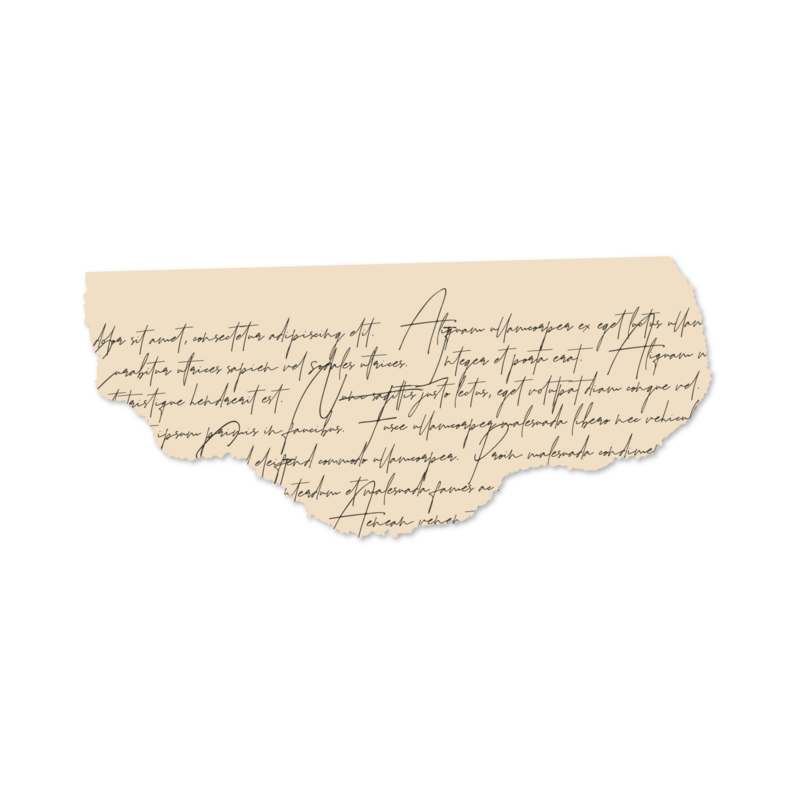 dolor sit amet, consectetur adipiscing elit. Aliquam ullamcorper ex eget luctus ullam
urabitur ultrices sapien vel sodales ultrices. Integer et porta erat. Aliquam
t tristique hendrerit est. Nunc sagittis justo lectus, eget volutpat diam congue vel.
ipsum primis in faucibus. Fusce ullamcorper malesuada libero nec vehicul
eleifend commodo ullamcorper. Proin malesuada condime
nterdum et malesuada fames ac
Aenean venen